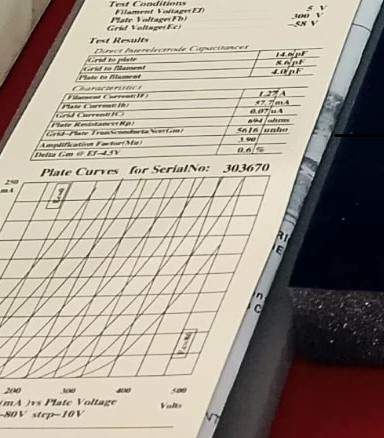 Test Conditions
Filament Voltage(Ef) 5 V
Plate Voltage(Eb) 300 V
Grid Voltage(Ec) -58 V
Test Results
Direct Interelectrode Capacitances
Grid to plate 14.6 pF
Grid to filament 8.6 pF
Plate to filament 4.0 pF
Characteristics
Filament Current(If) 1.27 A
Plate Current(Ib) 57.7 mA
Grid Current(IC) 0.07 uA
Plate Resistance(Rp) 694 ohms
Grid-Plate TransConductance(Gm) 5616 umho
Amplification Factor(Mu) 3.90
Delta Gm @ Ef=4.5V 0.6 %
Plate Curves for SerialNo: 303670
250
mA
200 300 400 500
(mA )vs Plate Voltage Volts
-80V step-10V